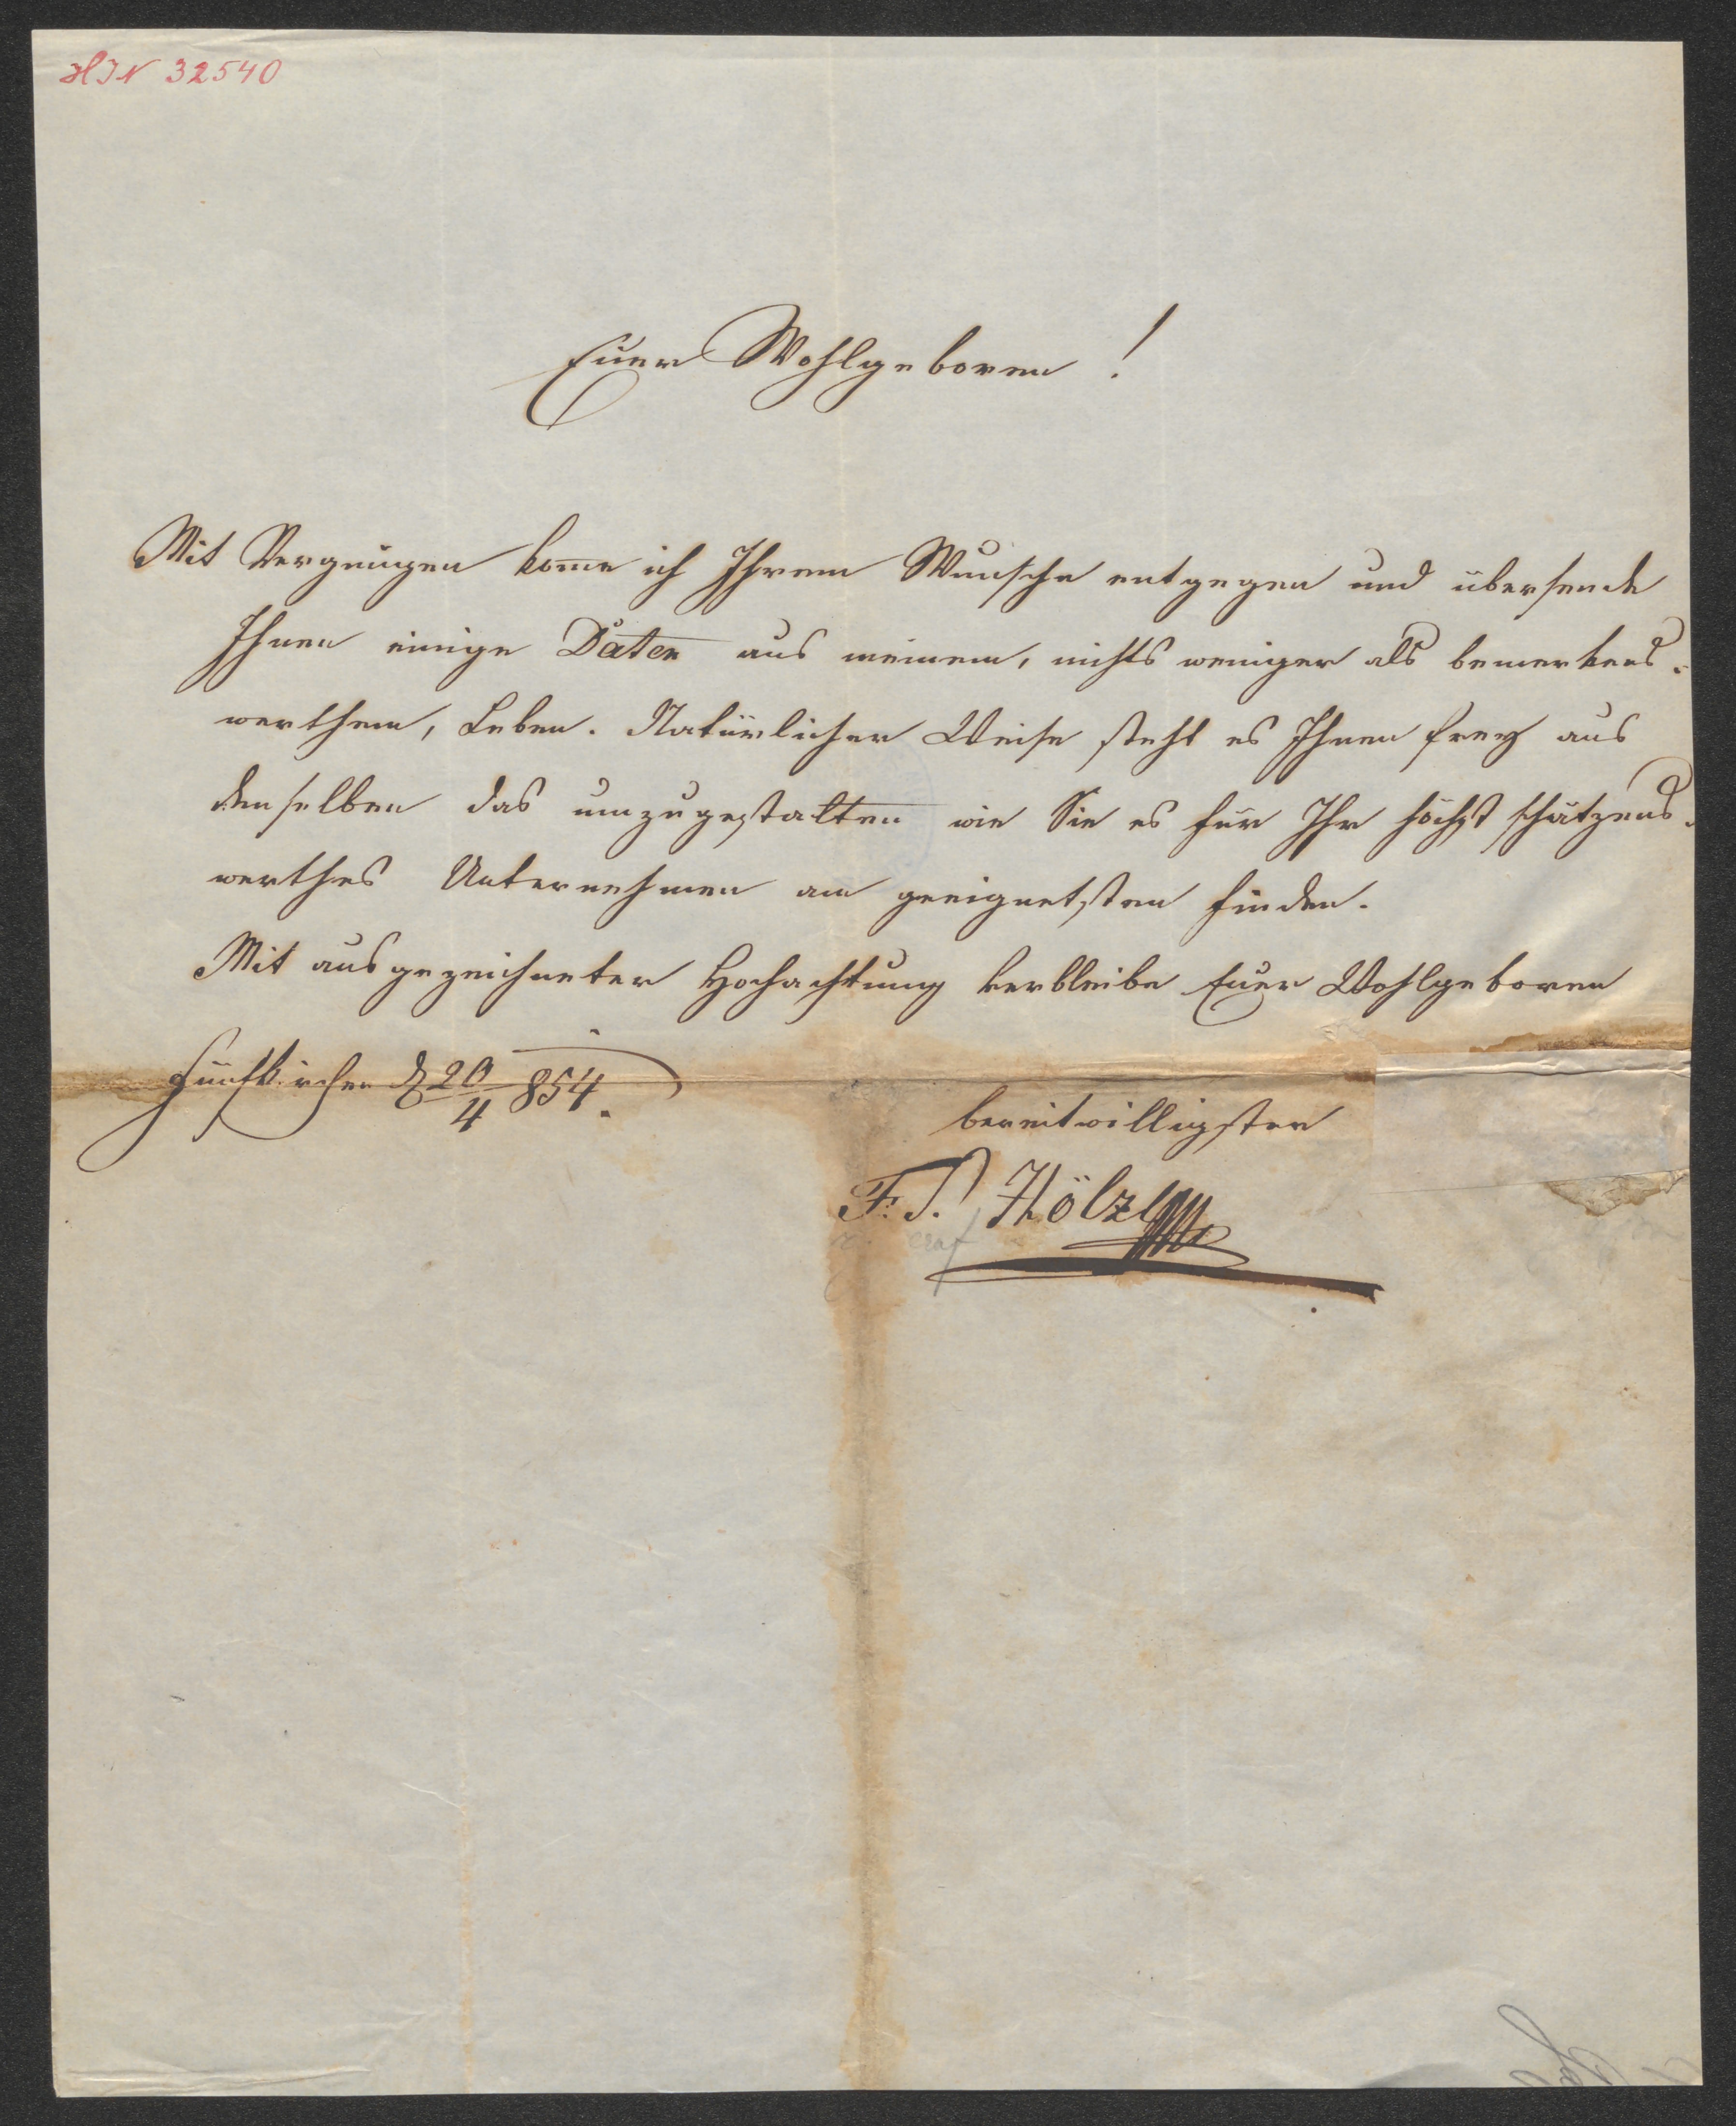 HIN 32540
Euer Wohlgeboren!
Mit Vergnügen kom̄e ich Ihrem Wunsche entgegen und übersende
Ihnen einige Daten aus meinem, nichts weniger als bemerkens-
werthem, Leben. Natürlicher Weise steht es Ihnen frey aus
denselben das umzugestalten wie Sie es für Ihr höchst schätzens-
werthes Unternehmen am geeignetsten finden.
Mit ausgezeichneter Hochachtung verbleibe Euer Wohlgeboren
Fünfkirchen d 20/4 854.
bereitwilligster
F. S. Hölzl